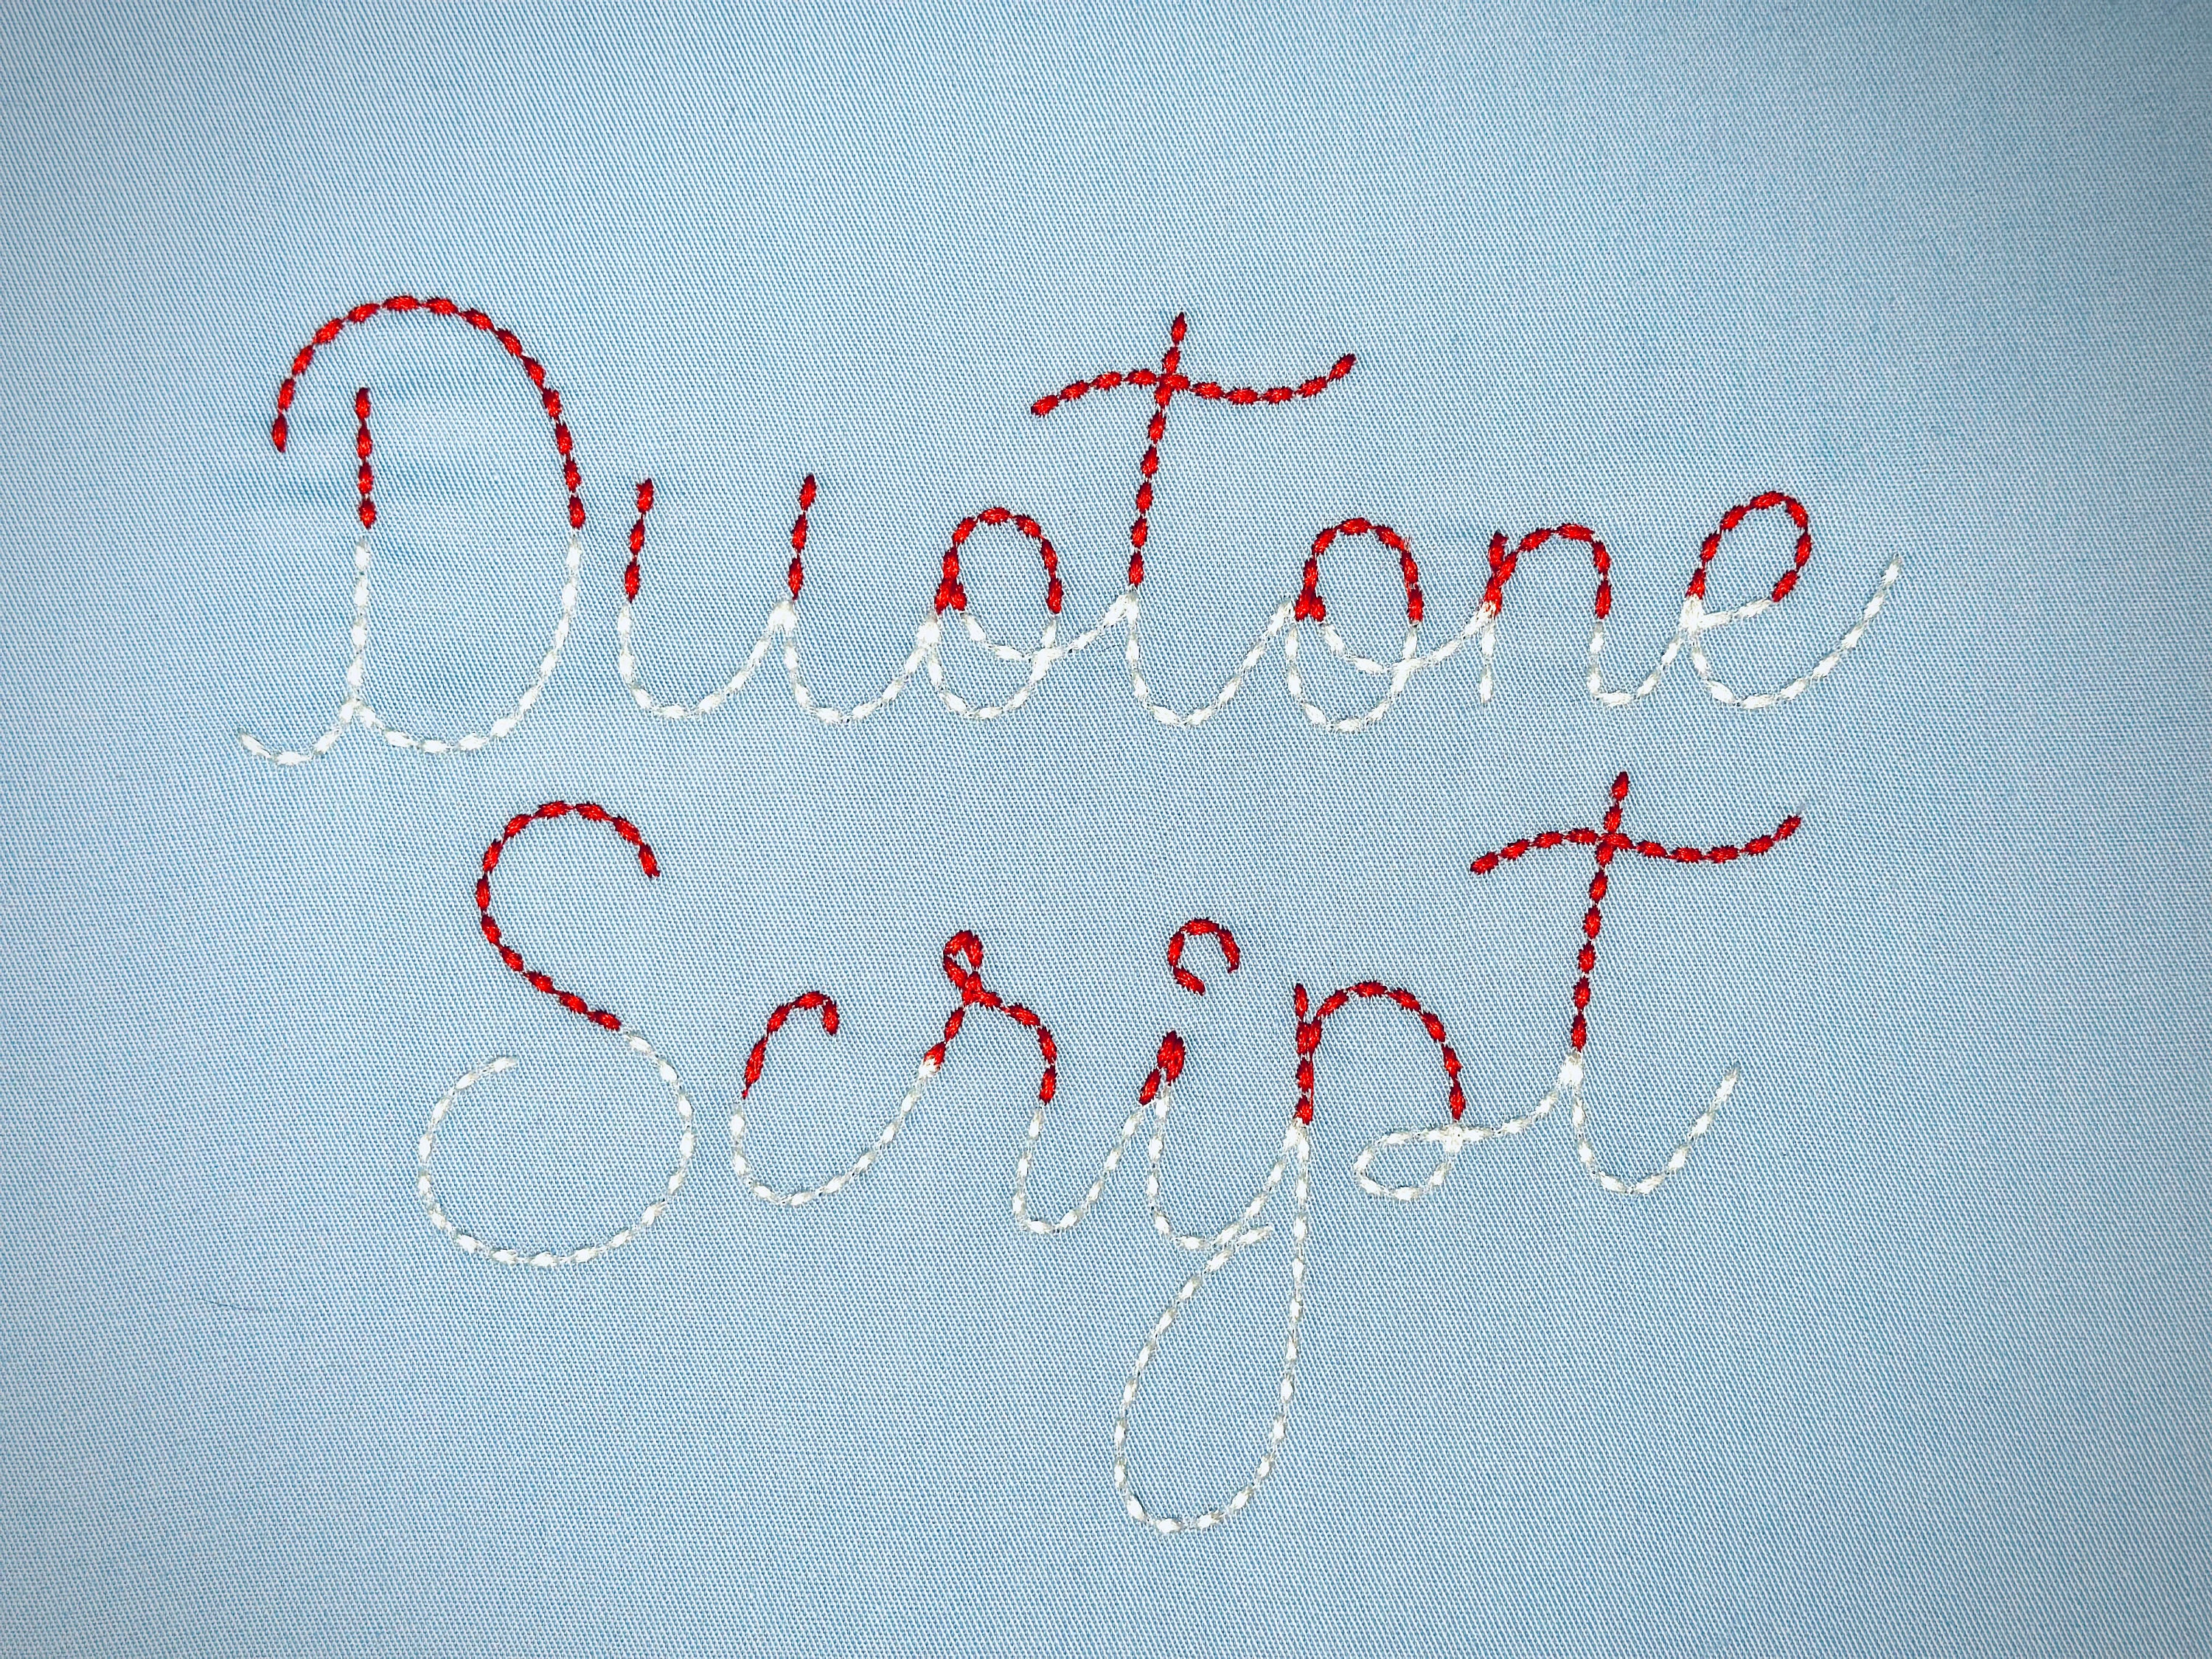 Duotone
Script